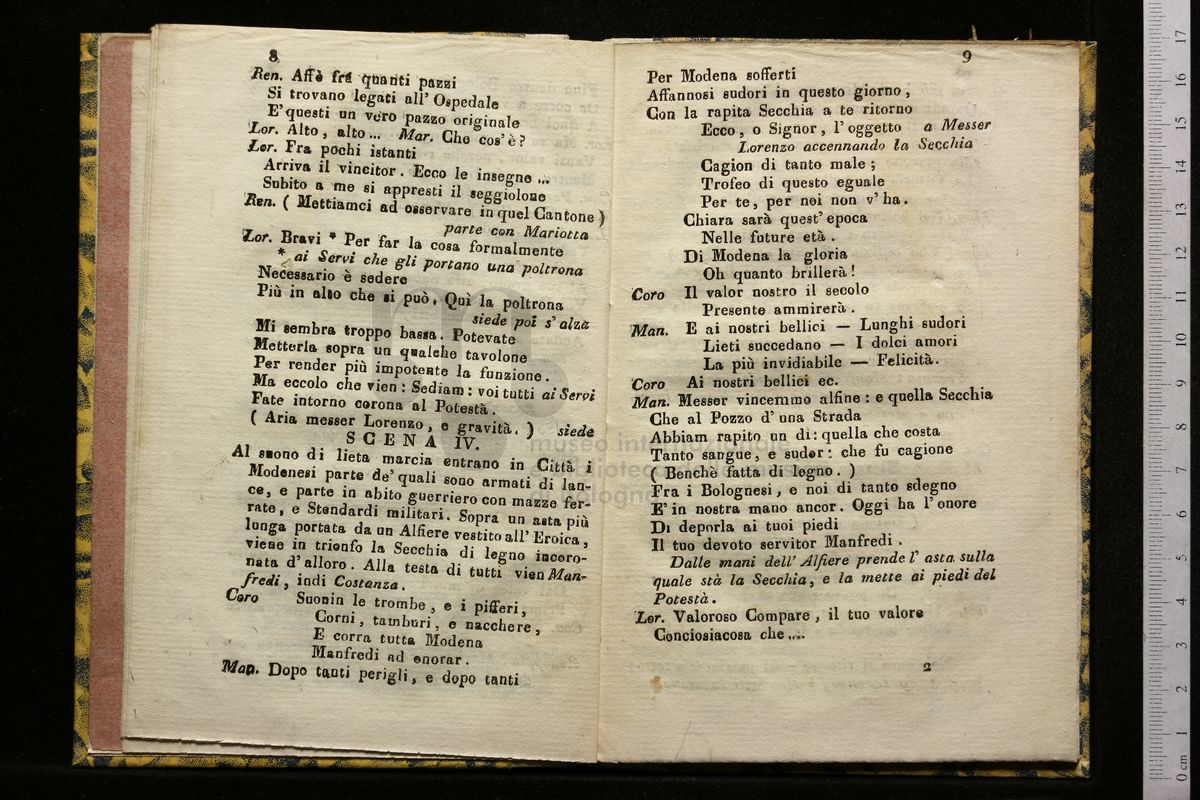 8
Ren. Affè frà quanti pazzi
Si trovano legati all' Ospedale
E' questi un vero pazzo originale
Lor. Alto, alto... Mar. Che cos' è?
Lor. Fra pochi istanti
Arriva il vincitor. Ecco le insegne ...
Subito a me si appresti il seggiolone
Ren. ( Mettiamci ad osservare in quel Cantone )
parte con Mariotta
Lor. Bravi * Per far la cosa formalmente
* ai Servi che gli portano una poltrona
Necessario è sedere
Più in alto che si può. Quì la poltrona
siede poi s' alza
Mi sembra troppo bassa. Potevate
Metterla sopra un qualche tavolone
Per render più impotente la funzione.
Ma eccolo che vien: Sediam: voi tutti ai Servi
Fate intorno corona al Potestà.
( Aria messer Lorenzo, e gravità. ) siede
SCENA IV.
Al suono di lieta marcia entrano in Città i
Modenesi parte de' quali sono armati di lan-
ce, e parte in abito guerriero con mazze fer-
rate, e Stendardi militari. Sopra un asta più
lunga portata da un Alfiere vestito all' Eroica,
viene in trionfo la Secchia di legno incoro-
nata d' alloro. Alla testa di tutti vien Man-
fredi, indi Costanza.
Coro Suonin le trombe, e i pifferi,
Corni, tamburi, e nacchere,
E corra tutta Modena
Manfredi ad onorar.
Man. Dopo tanti perigli, e dopo tanti
9
Per Modena sofferti
Affannosi sudori in questo giorno,
Con la rapita Secchia a te ritorno
Ecco, o Signor, l' oggetto a Messer
Lorenzo accennando la Secchia
Cagion di tanto male;
Trofeo di questo eguale
Per te, per noi non v' ha.
Chiara sarà quest' epoca
Nelle future età.
Di Modena la gloria
Oh quanto brillerà!
Coro Il valor nostro il secolo
Presente ammirerà.
Man. E ai nostri bellici — Lunghi sudori
Lieti succedano — I dolci amori
La più invidiabile — Felicità.
Coro Ai nostri bellici ec.
Man. Messer vincemmo alfine: e quella Secchia
Che al Pozzo d' una Strada
Abbiam rapito un dì: quella che costa
Tanto sangue, e sudor: che fu cagione
( Benchè fatta di legno. )
Fra i Bolognesi, e noi di tanto sdegno
E' in nostra mano ancor. Oggi ha l' onore
Di deporla ai tuoi piedi
Il tuo devoto servitor Manfredi.
Dalle mani dell' Alfiere prende l' asta sulla
quale stà la Secchia, e la mette ai piedi del
Potestà.
Lor. Valoroso Compare, il tuo valore
Conciosiacosa che....
2
museo internazionale
e biblioteca della musica
di Bologna
0 cm 1 2 3 4 5 6 7 8 9 10 11 12 13 14 15 16 17